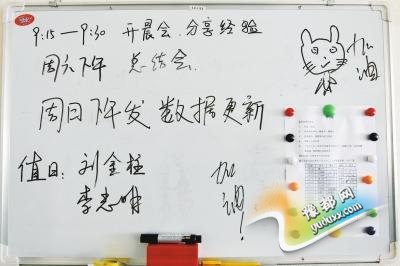 9:15—9:30 开晨会、分享经验
周六下午 总结会.
加油
周日下午发数据更新
值日: 刘金柱
李志明
加油!
豫都网
yuduxx.com